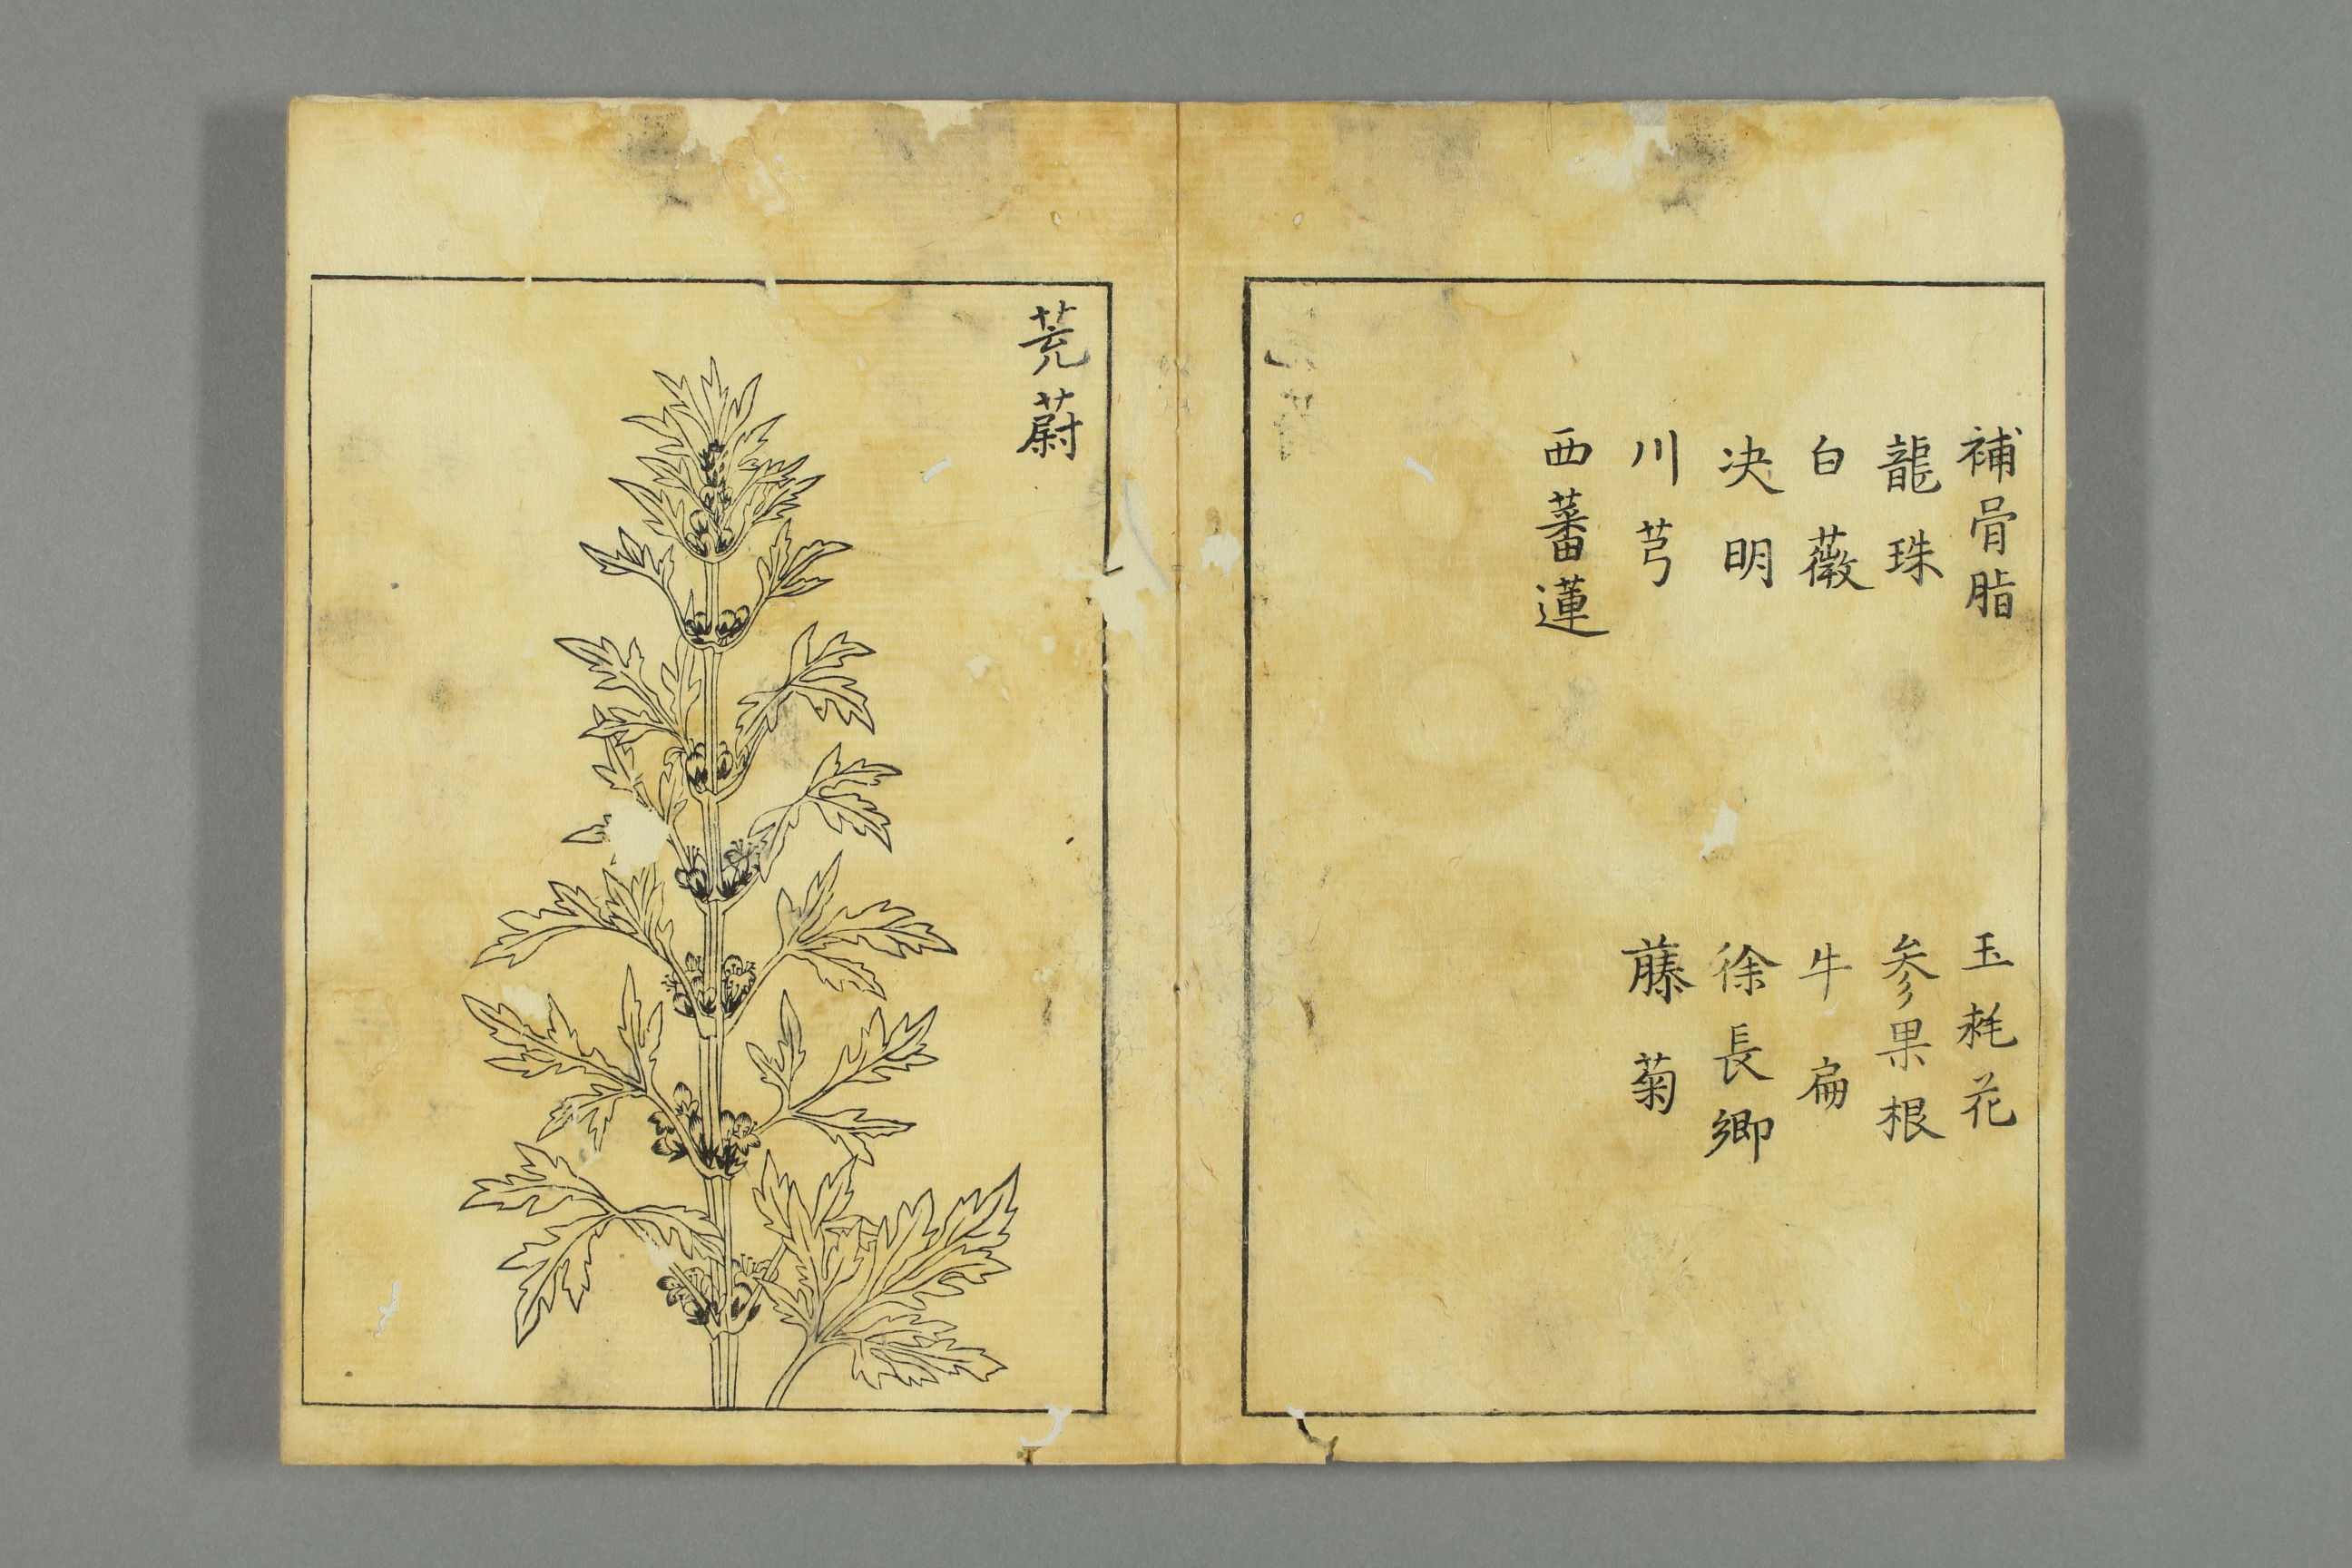 補骨脂
玉毦花
龍珠
参果根
白薇
牛扁
决明
徐長卿
川芎
藤菊
西蕃蓮
茺蔚